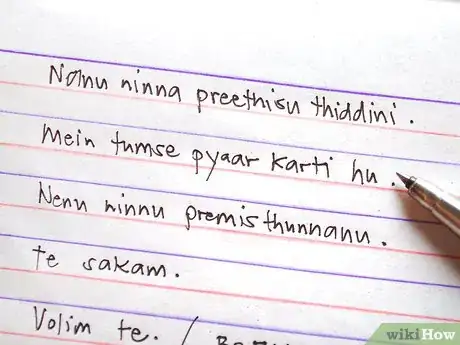 Nanu ninna preethisu thiddini.
Mein tumse pyaar karti hu.
Nenu ninnu premisthunnanu.
te sakam.
Volim te. /
wikiHow